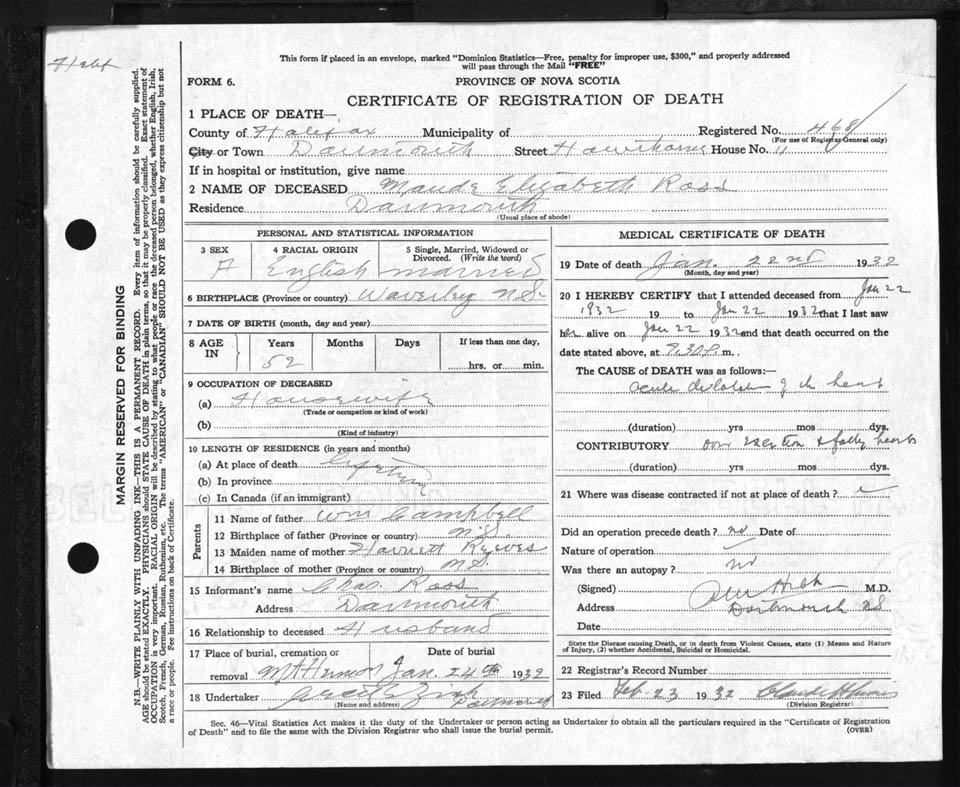 Halifax
MARGIN RESERVED FOR BINDING
N.B.—WRITE PLAINLY WITH UNFADING INK—THIS IS A PERMANENT RECORD. Every item of information should be carefully supplied.
AGE should be stated EXACTLY. PHYSICIANS should STATE CAUSE OF DEATH in plain terms, so that it may be properly classified. Exact statement of
OCCUPATION is very important. RACIAL ORIGIN will be described by stating to what people or race the deceased person belonged, whether English, Irish,
Scotch, French, German, Russian, Ruthenian, etc. The terms "AMERICAN" or "CANADIAN" SHOULD NOT BE USED as they express citizenship but not
a race or people. See instructions on back of Certificate.
This form if placed in an envelope, marked "Dominion Statistics—Free, penalty for improper use, $300," and properly addressed
will pass through the Mail "FREE"
FORM 6. PROVINCE OF NOVA SCOTIA
CERTIFICATE OF REGISTRATION OF DEATH
1 PLACE OF DEATH—
County of Halifax Municipality of Registered No. 468
(For use of Registrar-General only)
City or Town Dartmouth Street Hawthorne House No. 11
If in hospital or institution, give name
2 NAME OF DECEASED Maude Elizabeth Ross
Residence Dartmouth
(Usual place of abode)
PERSONAL AND STATISTICAL INFORMATION
3 SEX 4 RACIAL ORIGIN 5 Single, Married, Widowed or
Divorced. (Write the word)
F English married
6 BIRTHPLACE (Province or country) Waverley N.S.
7 DATE OF BIRTH (month, day and year)
8 AGE IN Years Months Days If less than one day,
52 hrs. or min.
9 OCCUPATION OF DECEASED
(a) Housewife
(Trade or occupation or kind of work)
(b)
(Kind of industry)
10 LENGTH OF RESIDENCE (in years and months)
(a) At place of death Lifetime
(b) In province
(c) In Canada (if an immigrant)
Parents
11 Name of father Wm Campbell
12 Birthplace of father (Province or country) N.S.
13 Maiden name of mother Harriett Reeves
14 Birthplace of mother (Province or country) N.S.
15 Informant's name Chas. Ross
Address Dartmouth
16 Relationship to deceased Husband
17 Place of burial, cremation or Date of burial
removal Mt Hermon Jan. 24th 1932
18 Undertaker Zink Dartmouth
(Name and address)
MEDICAL CERTIFICATE OF DEATH
19 Date of death Jan. 22nd 1932
(Month, day and year)
20 I HEREBY CERTIFY that I attended deceased from Jan 22
1932 19 to Jan 22 1932 that I last saw
her alive on Jan 22 1932 and that death occurred on
date stated above, at 9.30 P. m.
The CAUSE of DEATH was as follows:—
acute dilatation of the heart
(duration) yrs mos dys.
CONTRIBUTORY over exertion & fatty heart
(duration) yrs mos dys.
21 Where was disease contracted if not at place of death?
Did an operation precede death? no Date of
Nature of operation
Was there an autopsy? no
(Signed) M.D.
Address Dartmouth NS
Date
State the Disease causing Death, or in death from Violent Causes, state (1) Means and Nature
of Injury, (2) whether Accidental, Suicidal or Homicidal.
22 Registrar's Record Number
23 Filed Feb. 23 1932
(Division Registrar)
Sec. 46—Vital Statistics Act makes it the duty of the Undertaker or person acting as Undertaker to obtain all the particulars required in the "Certificate of Registration
of Death" and to file the same with the Division Registrar who shall issue the burial permit. (OVER)